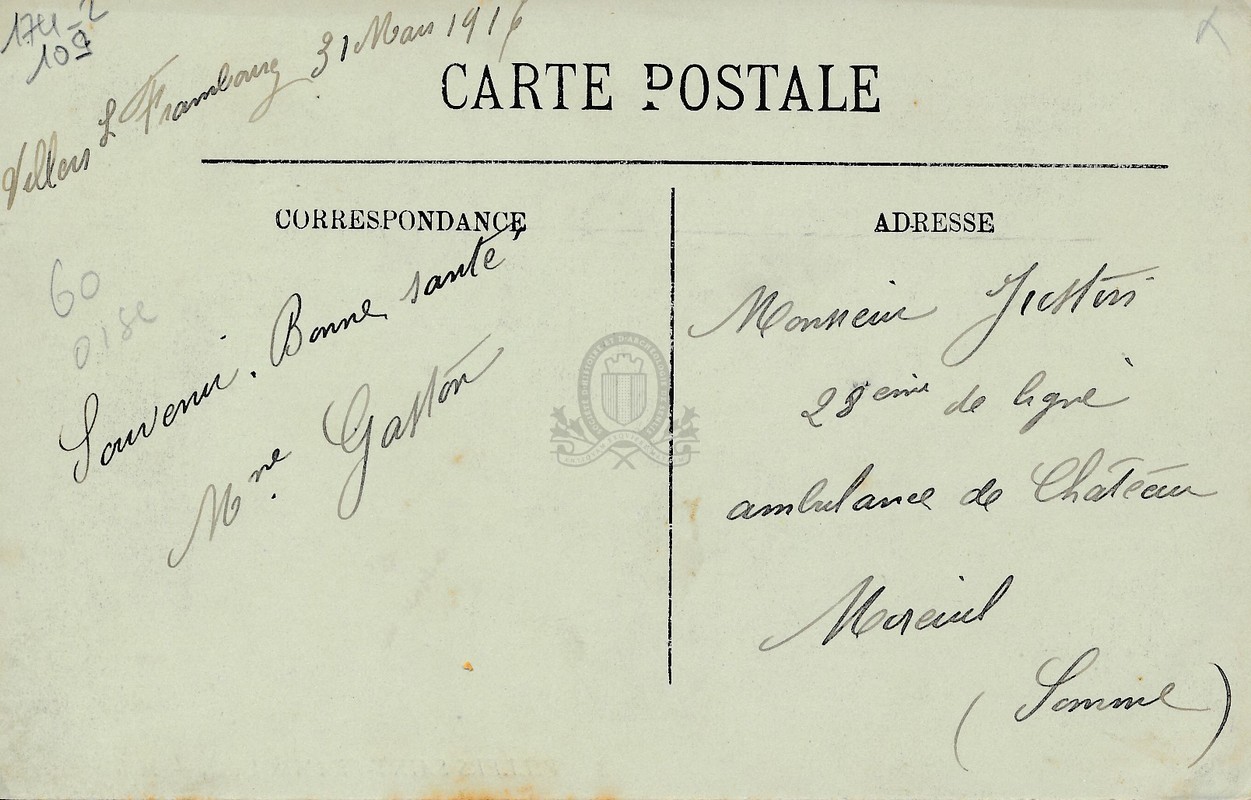 174-2
109
Villers St Frambourg 31 Mars 1916
CARTE POSTALE
CORRESPONDANCE
ADRESSE
60
oise
Souvenir. Bonne santé
Mme Gaston
Monsieur
28eme de ligne
ambulance de Château
Moreuil
(Somme)